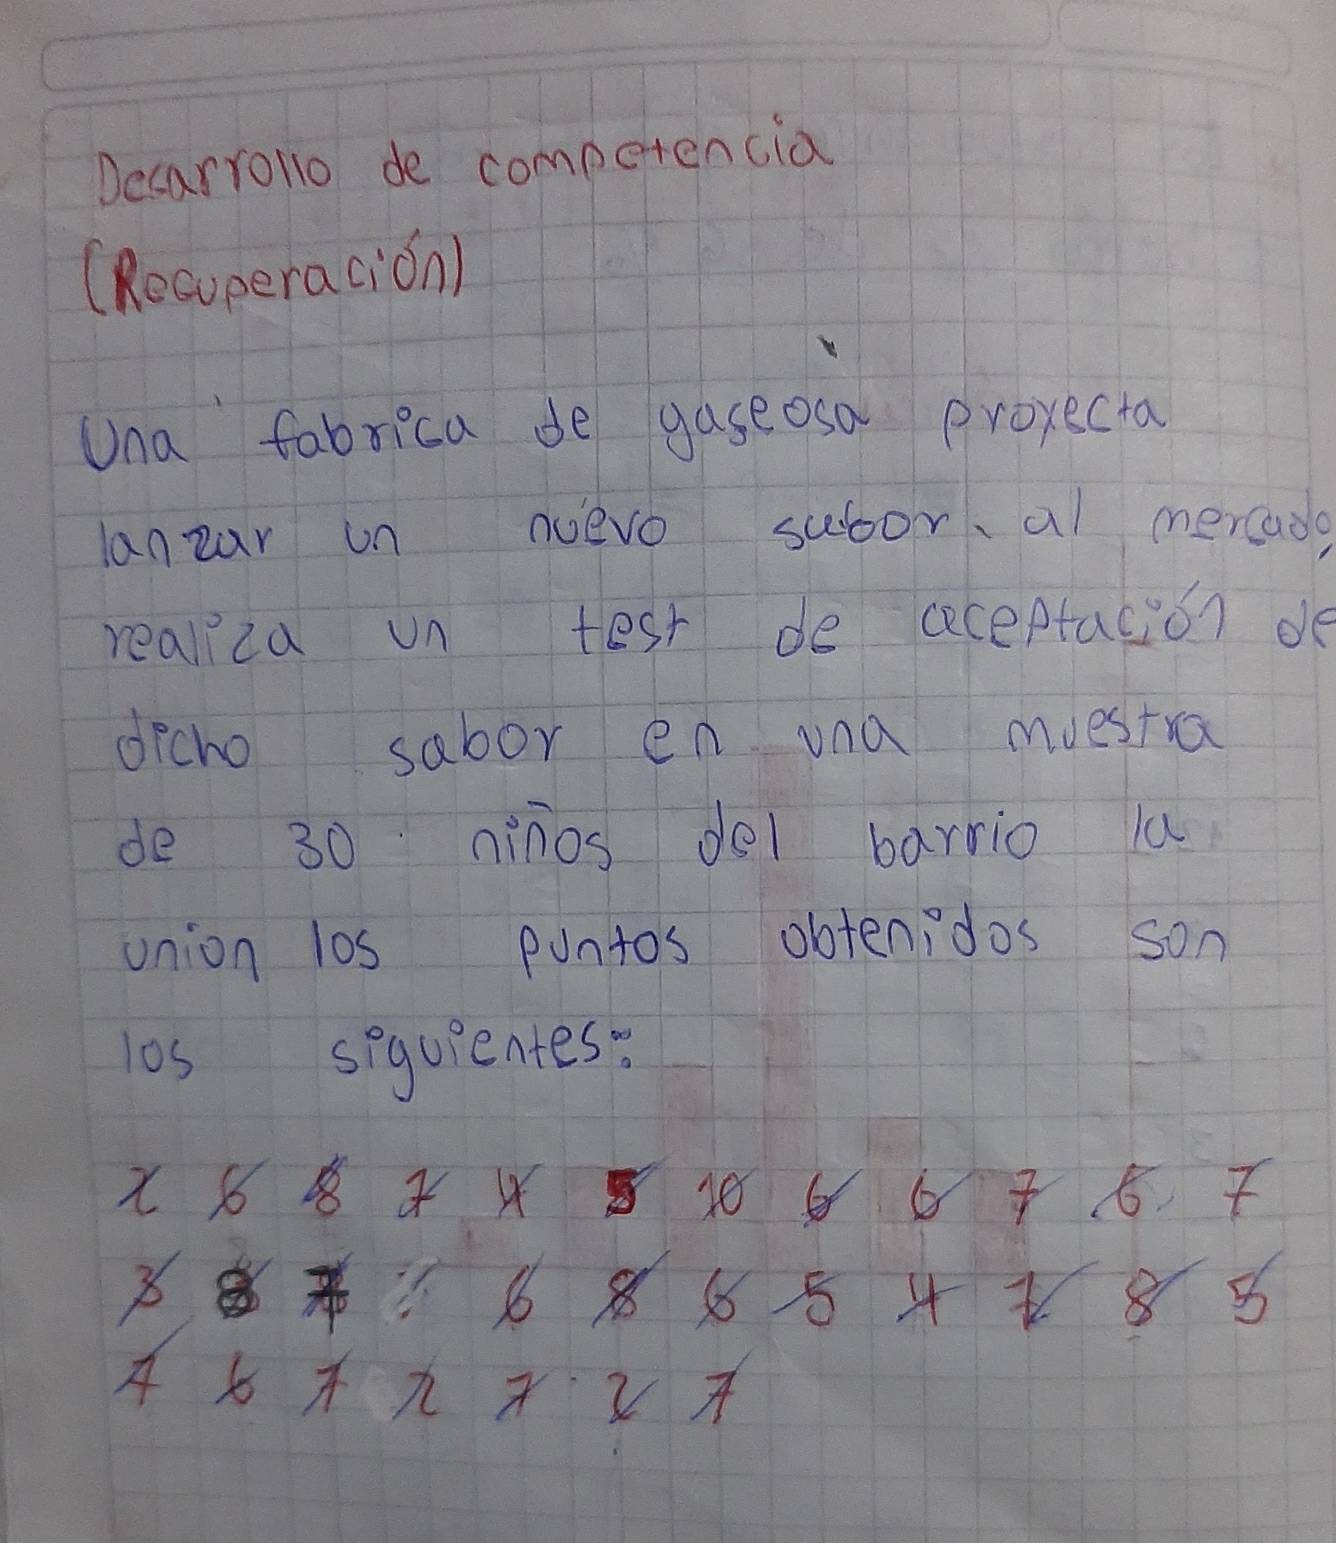 Desarrollo de competencia
(Recuperación)
Una fabrica de gaseosa proyecta
lanzar un nuevo sabor al mercado,
realiza un test de aceptación de
dicho sabor en una muestra
de 30 niños del barrio la
union los puntos obtenidos son
los siguientes:
2 6 8 7 4 5 10 6 6 7 6 7
3 8 7 6 8 6 5 4 7 8 5
7 6 7 2 7 2 7